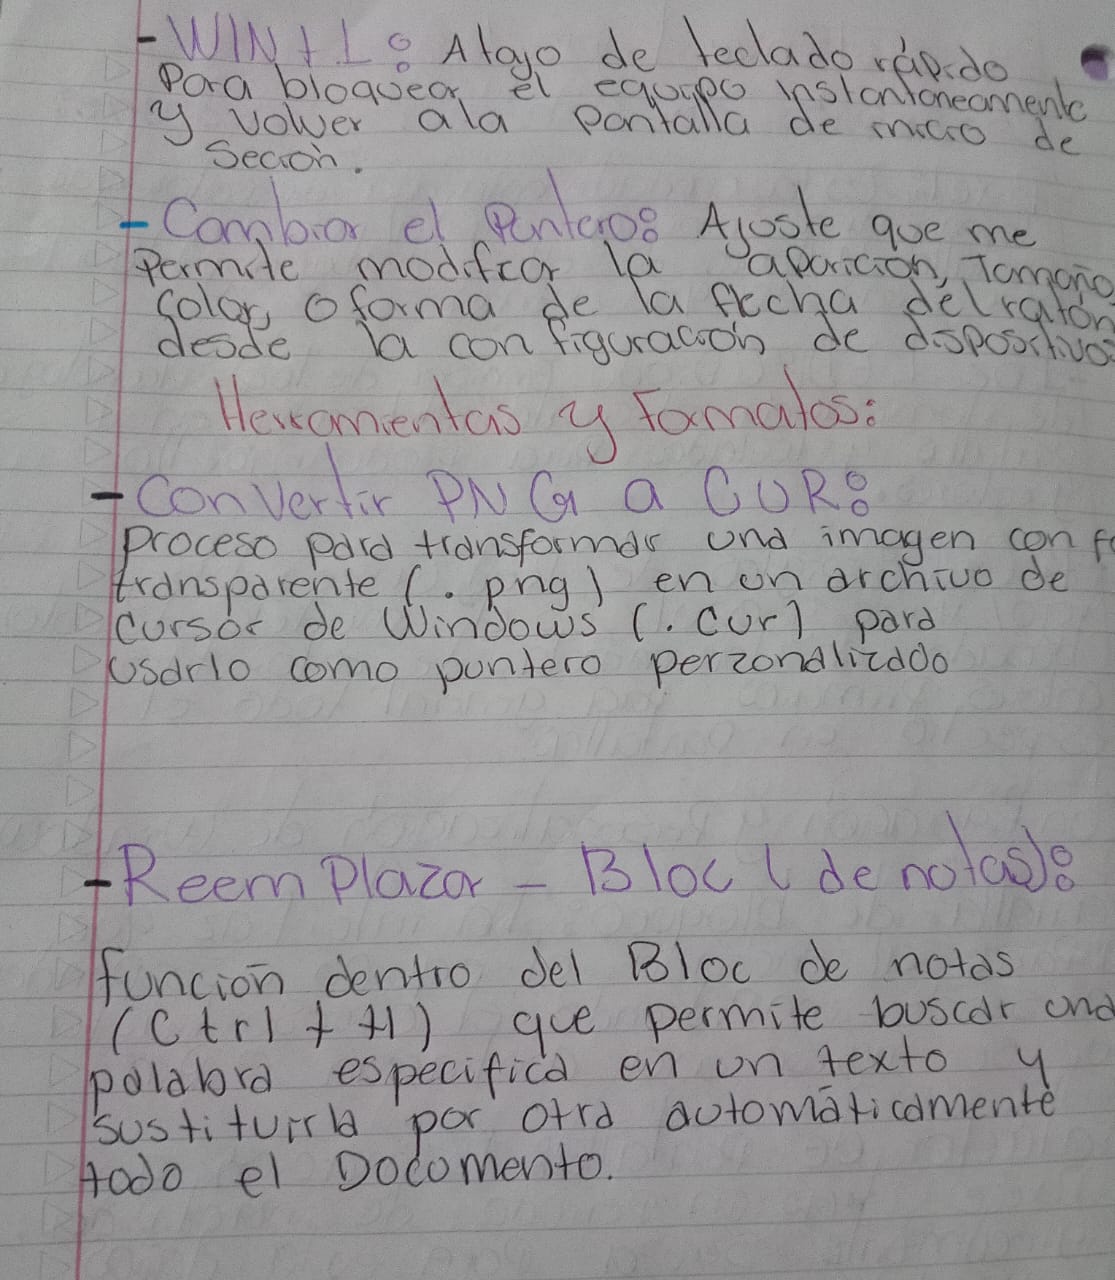 - WIN + L: Atajo de teclado rápido
para bloquear el equipo instantaneamente
y volver ala pantalla de inicio de
Seción.
- Cambiar el Puntero: Ajuste que me
Permite modificar la aparición, Tamaño
Color, o forma de la flecha del ratón
desde la configuración de dispositivos
Herramientas y Formatos:
- Convertir PNG a CUR:
Proceso para transformar una imagen con
transparente (.png) en un archivo de
Cursor de Windows (.cur) para
Usarlo como puntero perzonalizado
- Reemplazar - Bloc (de notas):
función dentro del Bloc de notas
(Ctrl + H) que permite buscar una
palabra especifica en un texto y
sustituirla por otra automáticamente
todo el Documento.